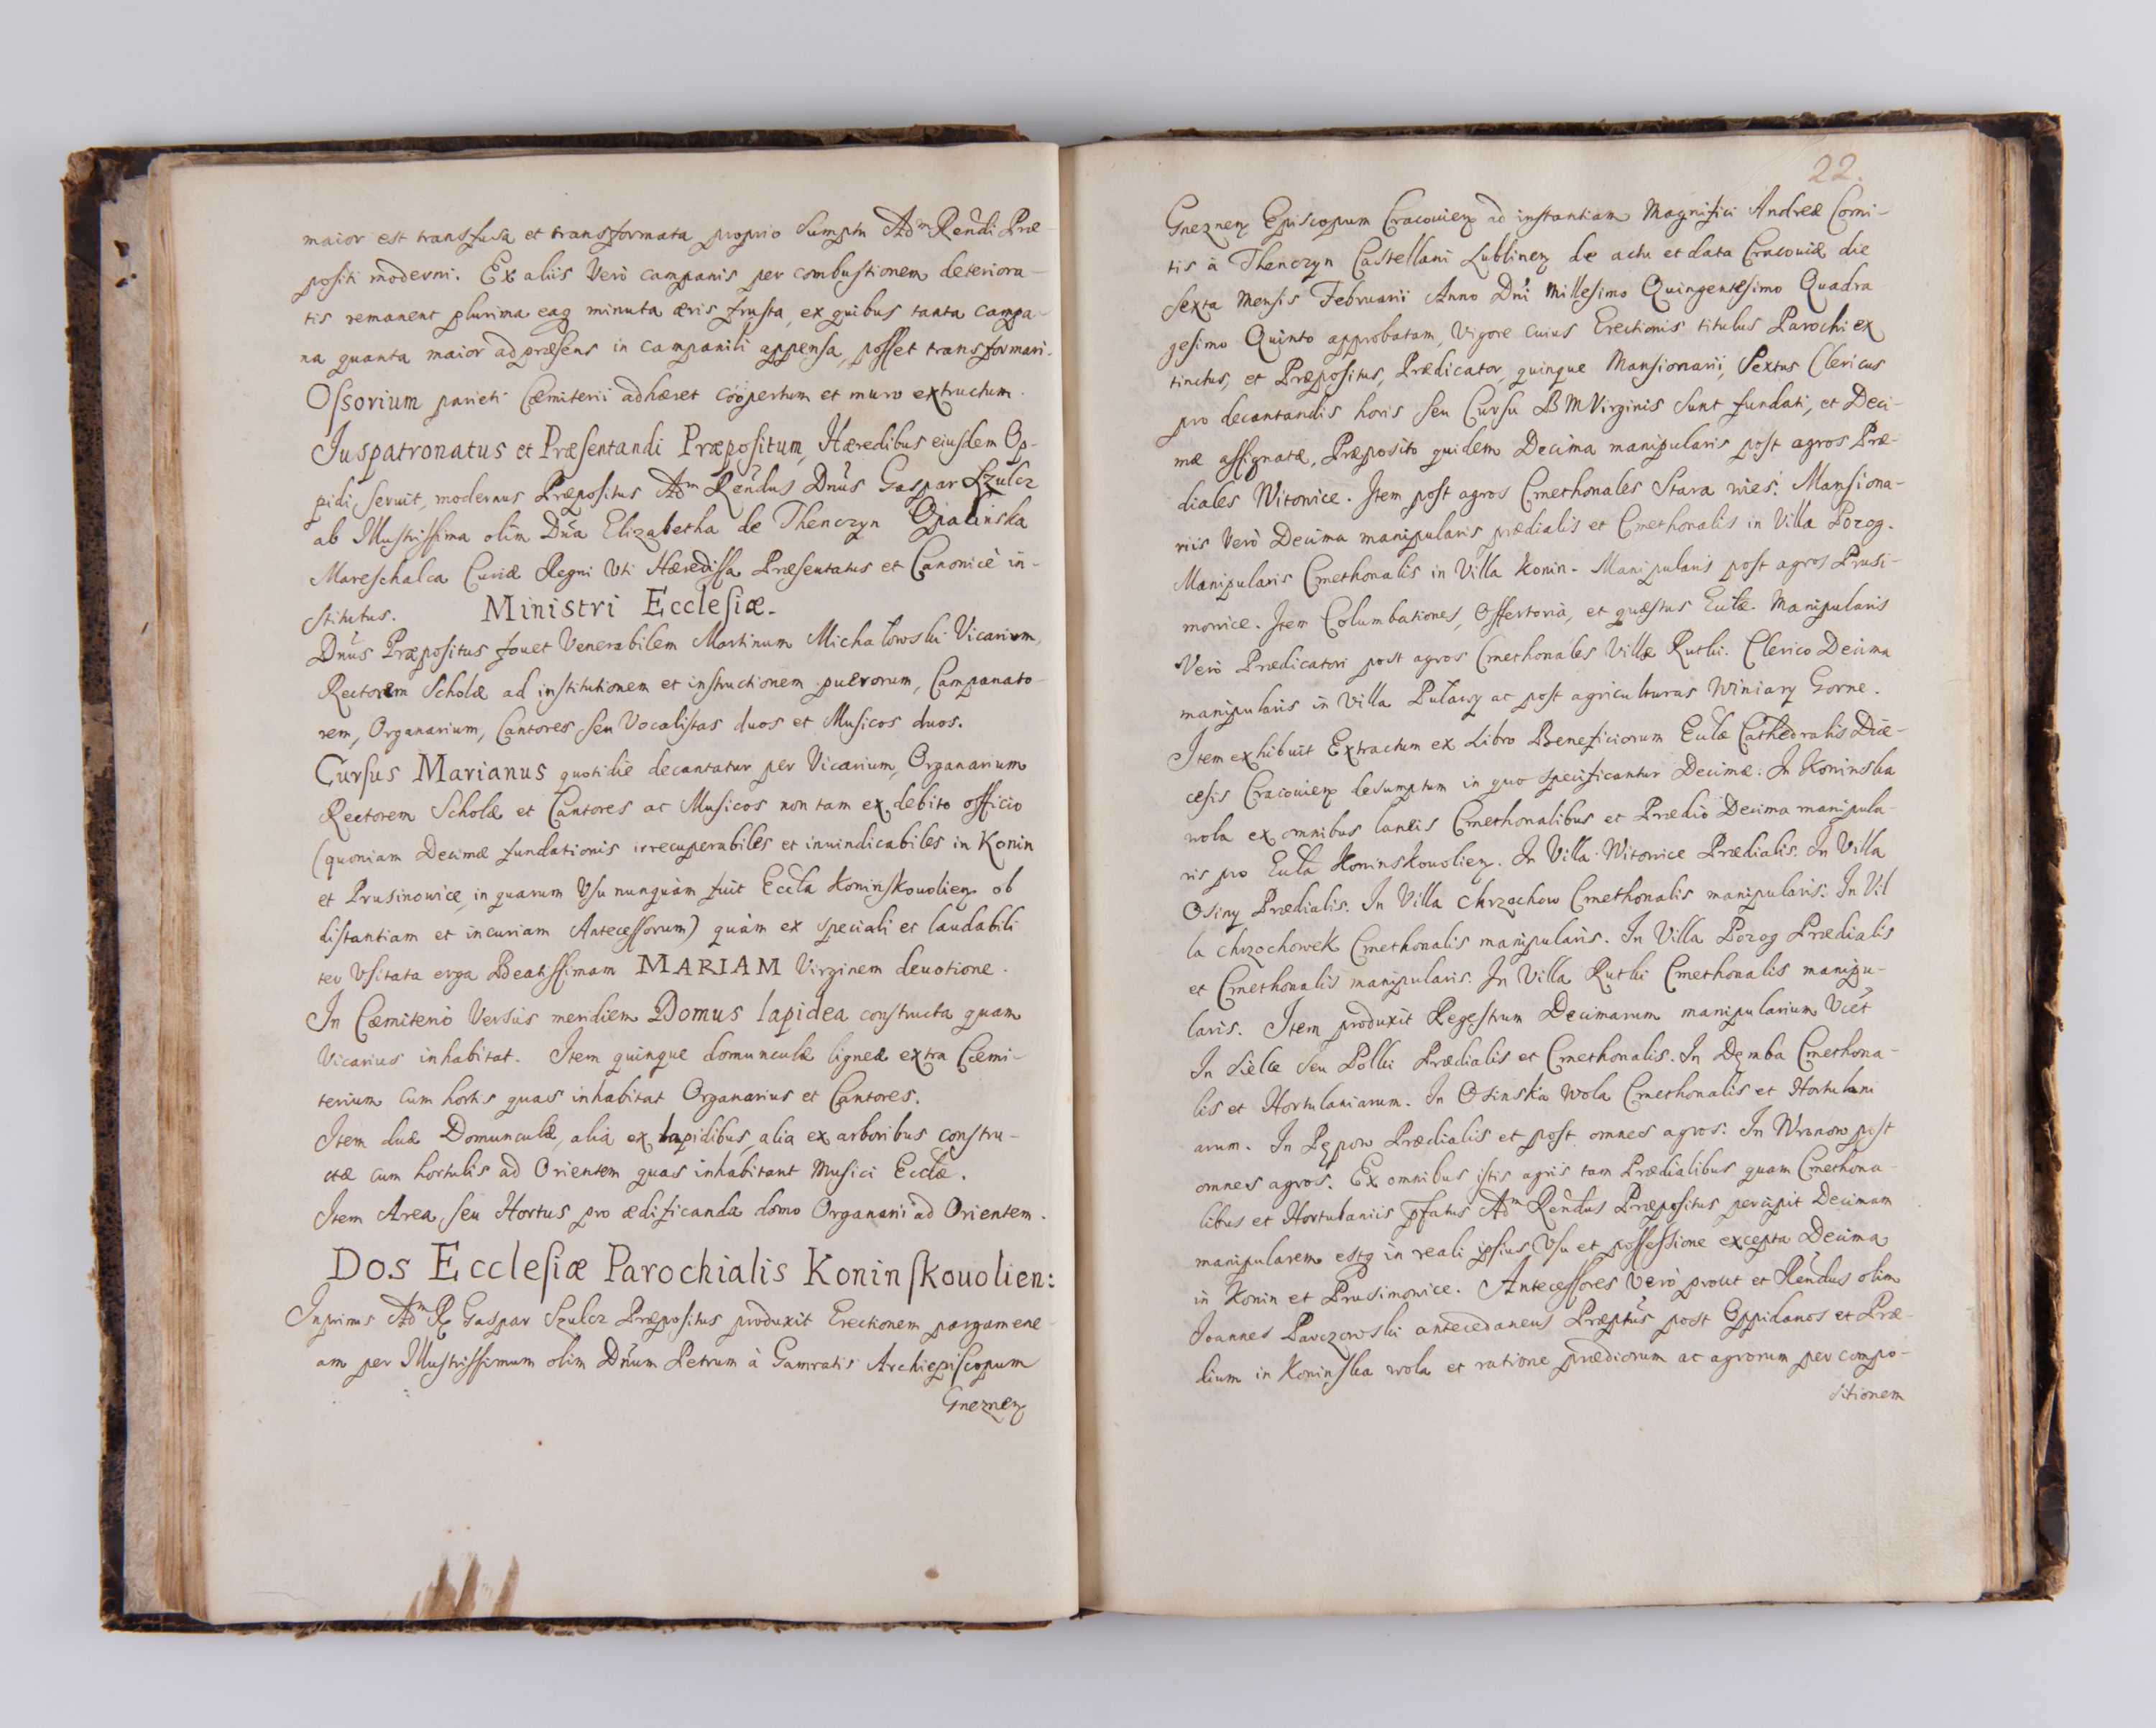 maior est transfusa et transformata proprio sumptu Adm Rendi Præ-
positi moderni. Ex aliis Verò campanis per combustionem deteriora-
tis remanent plurima eaq minuta æris frusta, ex quibus tanta campa-
na quanta maior ad præsens in campanili appensa, posset transformari.
Ossorium parieti Cæmiterii adhæret coopertum et muro extructum.
Juspatronatus et Præsentandi Præpositum, Hæredibus eiusdem Op-
pidi seruit, modernus Præpositus Adm Rendus Dnus Gaspar Szulcz
ab Illustrissima olim Dna Elizabetha de Thenczyn Opalinska
Mareschalca Curiæ Regni Vti Hæredissa Præsentatus et Canonicè in-
stitutus. Ministri Ecclesiæ.
Dnus Præpositus fouet Venerabilem Martinum Michałowski Vicarium,
Rectorem Scholæ ad institutionem et instructionem puerorum, Campanato-
rem, Organarium, Cantores seu Vocalistas duos et Musicos duos.
Cursus Marianus quotidie decantatur per Vicarium, Organarium
Rectorem Scholæ et Cantores ac Musicos non tam ex debito officio
(quoniam Decimæ fundationis irrecuperabiles et inuindicabiles in Konin
et Prusinowice, in quarum Vsu nunquàm fuit Eccla Koninskouolien ob
distantiam et incuriam Antecessorum) quàm ex speciali et laudabili
ter Vsitata erga Beatissimam MARIAM Virginem deuotione.
In Cæmiterio Versus meridiem Domus lapidea constructa quam
Vicarius inhabitat. Item quinque domunculæ ligneæ extra Cæmi-
terium cum hortis quas inhabitat Organarius et Cantores.
Item duæ Domunculæ, alia ex lapidibus, alia ex arboribus constru-
ctæ cum hortulis ad Orientem quas inhabitant Musici Ecclæ.
Item Area seu Hortus pro ædificanda domo Organarii ad Orientem.
Dos Ecclesiæ Parochialis Koninskouolien:
Inprimis Adm R Gaspar Szulcz Præpositus produxit Erectionem pargamene-
am per Illustrissimum olim Dnum Petrum à Gamratis Archiepiscopum
Gneznen
22.
Gneznen Episcopum Cracouien ad instantiam Magnifici Andreæ Comi-
tis à Thenczyn Castellani Lublinen de actu et data Cracouiæ die
sexta Mensis Februarii Anno Dni Millesimo Quingentesimo Quadra
gesimo Quinto approbatam, Vigore cuius Erectionis titulus Parochi ex
tinctus, et Præpositus, Prædicator, quinque Mansionarii, Sextus Clericus
pro decantandis horis seu Cursu BMVirginis sunt fundati, et Deci-
mæ assignatæ, Præposito quidem Decima manipularis post agros Præ-
diales Witowice. Item post agros Cmethonales Stara wies. Mansiona-
riis Verò Decima manipularis prædialis et Cmethonalis in Villa Pozog.
Manipularis Cmethonalis in Villa Konin. Manipularis post agros Prusi-
nowice. Item Columbationes, Offertoria, et quæstus Ecclæ. Manipularis
Verò Prædicatori post agros Cmethonales Villæ Rutki. Clerico Decima
manipularis in Villa Puławy ac post agriculturas Winiary Gorne.
Item exhibuit Extractum ex Libro Beneficiorum Ecclæ Cathedralis Diœ-
cesis Cracouien desumptum in quo specificantur Decimæ: In Koninska
wola ex omnibus laneis Cmethonalibus et Prædio Decima manipula-
ris pro Eccla Koninskouolien. In Villa Witowice Prædialis. In Villa
Osiny Prædialis. In Villa Chrzochow Cmethonalis manipularis. In Vil
la chrzochowek Cmethonalis manipularis. In Villa Pozog Prædialis
et Cmethonalis manipularis. In Villa Rutki Cmethonalis manipu-
laris. Item produxit Regestrum Decimarum manipularium Vict
In Sielce seu Polki Prædialis et Cmethonalis. In Dęmba Cmethona-
lis et Hortulaniarum. In Osinska Wola Cmethonalis et Hortulani
arum. In Pępow Prædialis et post omnes agros. In Wronow post
omnes agros. Ex omnibus istis agris tam Prædialibus quam Cmethona-
libus et Hortulaniis pfatus Adm Rendus Præpositus percipit Decimam
manipularem estq in reali ipsius Vsu et possessione excepta Decima
in Konin et Prusinowice. Antecessores Verò prout et Rendus olim
Joannes Parczowski antecedaneus Præptus post Oppidanos et Præ-
dium in Koninska wola et ratione prædiorum ac agrorum per compo-
sitionem